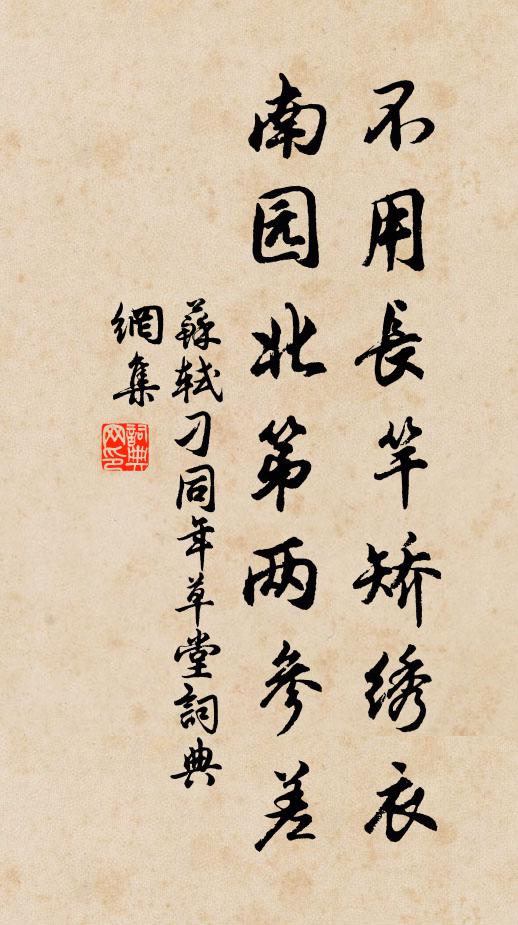 不用長竿矯绣衣
南园北第两參差
蘇軾刁同年草堂詞典
網集
詞典网印